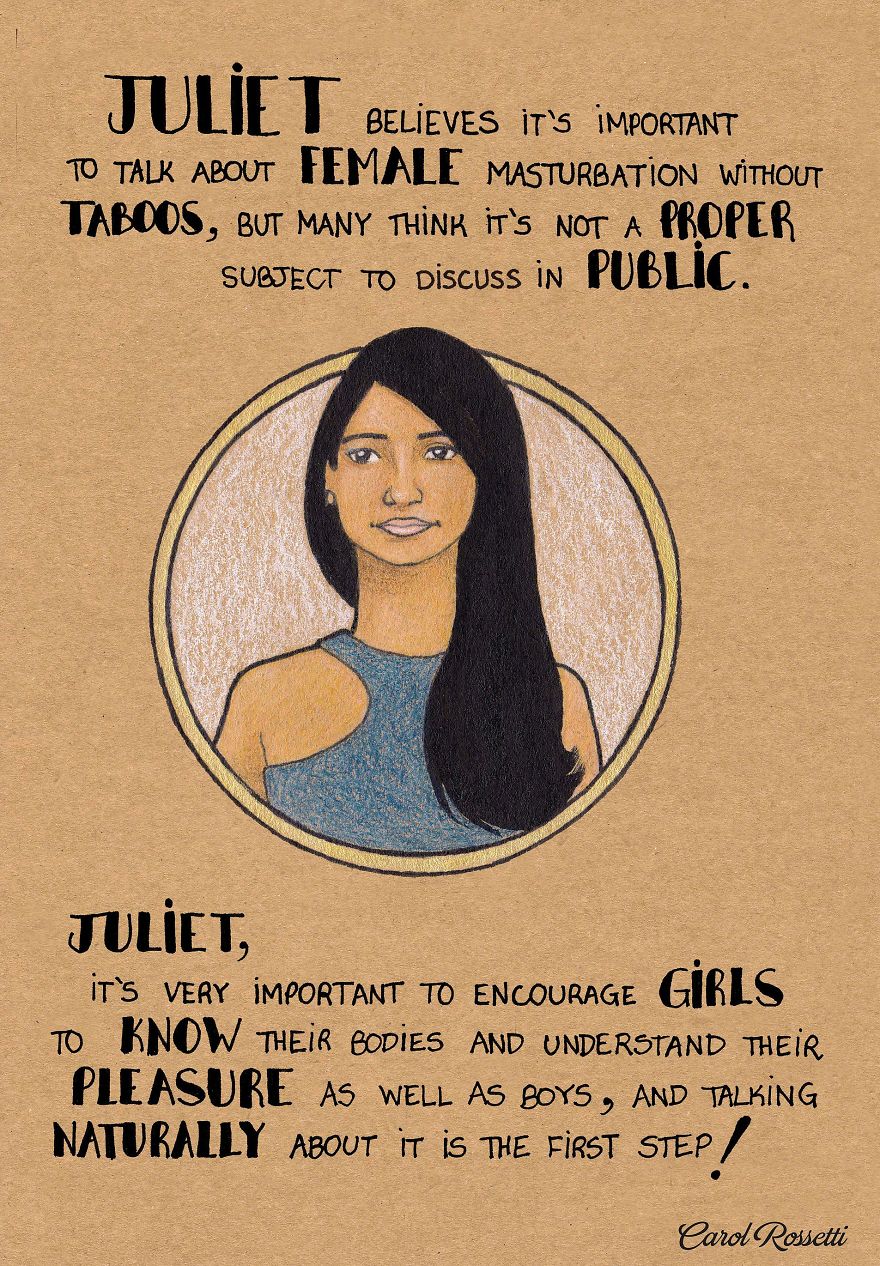 JULIET BELIEVES IT'S IMPORTANT
TO TALK ABOUT FEMALE MASTURBATION WITHOUT
TABOOS, BUT MANY THINK IT'S NOT A PROPER
SUBJECT TO DISCUSS IN PUBLIC.
JULIET,
IT'S VERY IMPORTANT TO ENCOURAGE GIRLS
TO KNOW THEIR BODIES AND UNDERSTAND THEIR
PLEASURE AS WELL AS BOYS, AND TALKING
NATURALLY ABOUT IT IS THE FIRST STEP!
Carol Rossetti